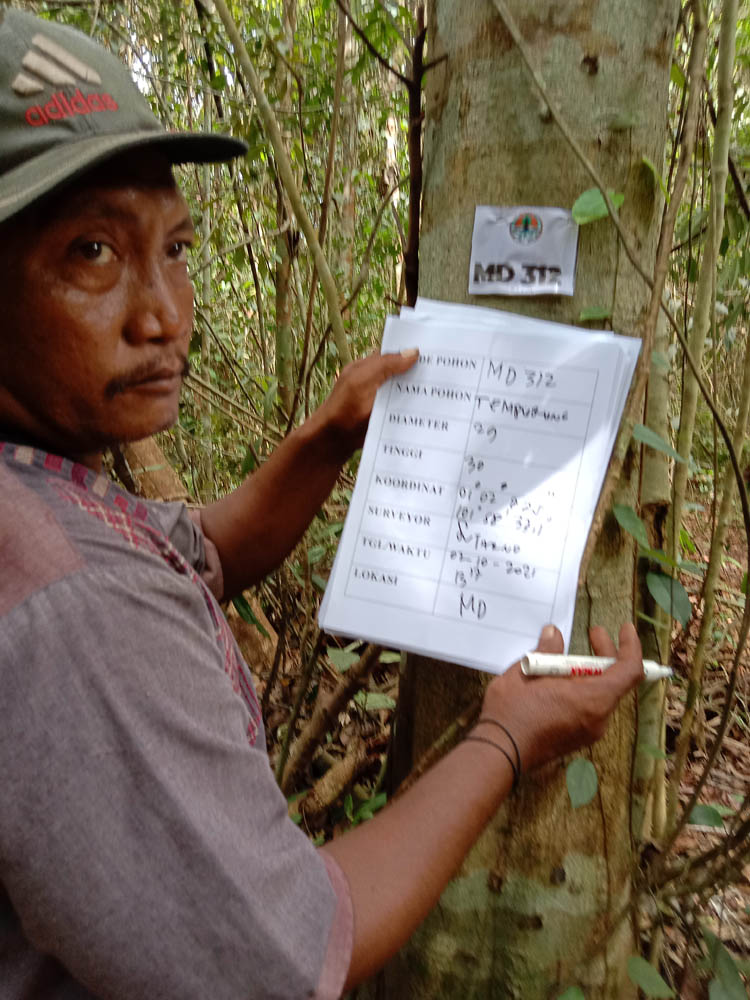 adidas
MD 312
DE POHON MD 312
NAMA POHON TEMPURUNG
DIAMETER 29
TINGGI 30
KOORDINAT 01° 02'
SURVEYOR
TGL/WAKTU 02-10-2021
13 17
LOKASI MD